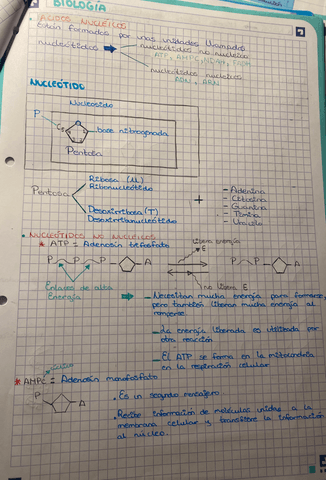 BIOLOGÍA
ÁCIDOS NUCLEICOS
Están formados por unas unidades llamadas
nucleótidos
nucleótidos no nucleicos
ATP, AMPC, NDAD, FAD
nucleótidos nucleicos
ADN, ARN
NUCLEÓTIDO
Nucleosido
P
base nitrogenada
Pentosa
Pentosa
Ribosa (U)
Ribonucleótido
Desoxirribosa (T)
Desoxirribonucleótido
+
- Adenina
- Citosina
- Guanina
- Timina
- Uracilo
NUCLEÓTIDOS NO NUCLEICOS
* ATP = Adenosín trifosfato
libera energía
E
P P P A
P P A
no libera E
Enlaces de alta
Energía
- Necesitan mucha energía para formarse,
pero también liberan mucha energía al
romperse
- La energía liberada es utilizada por
otra reacción
- El ATP se forma en la mitocondria
en la respiración celular
cíclico
* AMPC = Adenosín monofosfato
P A
. Es un segundo mensajero
. Recibe información de moléculas unidas a la
membrana celular y transfiere la información
al núcleo.